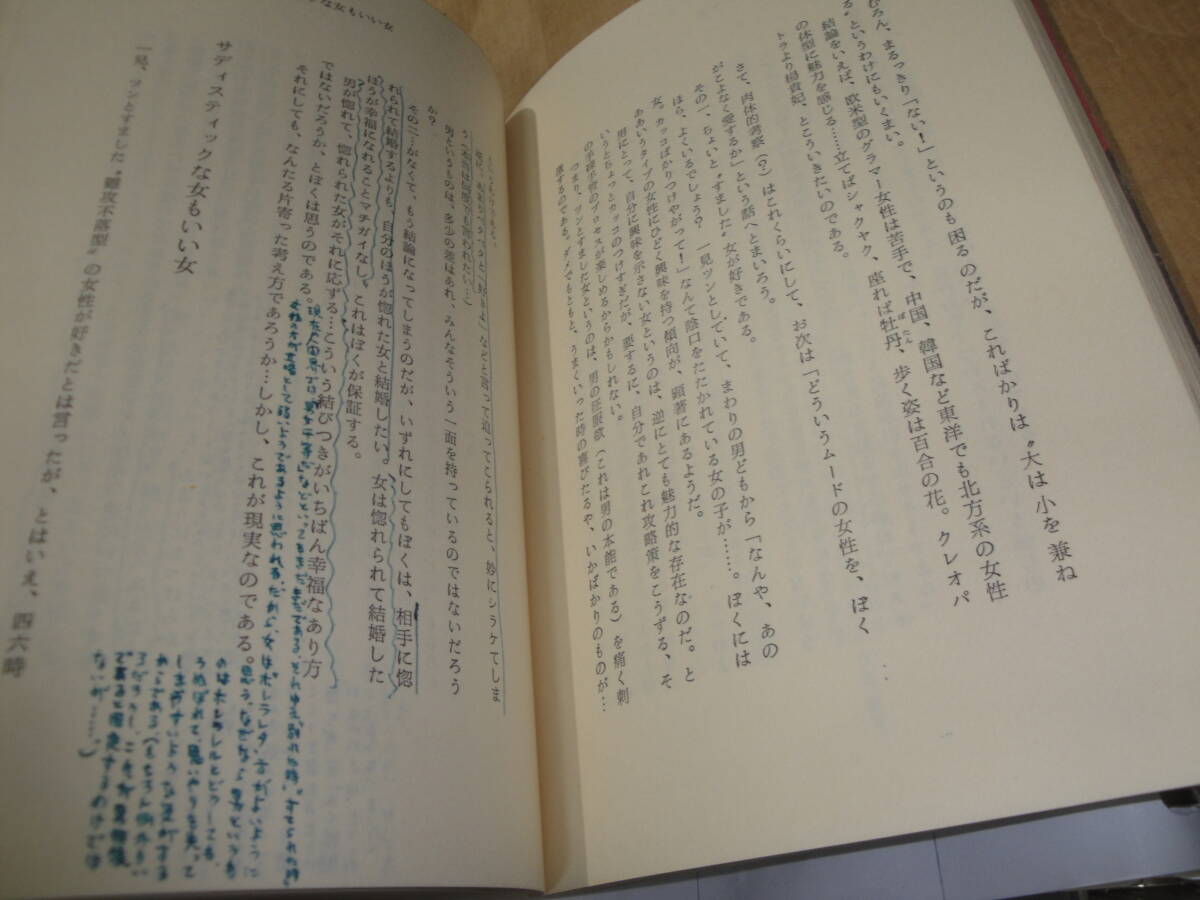 むろん、まるっきり「ない！」というのも困るのだが、こればかりは〝大は小を兼ね
る〟というわけにもいくまい。
結論をいえば、欧米型のグラマー女性は苦手で、中国、韓国など東洋でも北方系の女性
の体型に魅力を感じる……立てばシャクヤク、座れば牡丹、歩く姿は百合の花。クレオパ
ぼたん
トラより楊貴妃、とこういきたいのである。
さて、肉体的考察（？）はこれくらいにして、お次は「どういうムードの女性を、ぼく
がこよなく愛するか」という話へとまいろう。
その一、ちょいと〝すました〟女が好きである。
ほら、よくいるでしょう？　一見ツンとしていて、まわりの男どもから「なんや、あの
女。カッコばかりつけやがって！」なんて陰口をたたかれている女の子が……。ぼくには
ああいうタイプの女性にひどく興味を持つ傾向が、顕著にあるようだ。
男にとって、自分に興味を示さない女というのは、逆にとても魅力的な存在なのだ。と
いうとちょっとカッコのつけすぎだが、要するに、自分であれこれ攻略策をこうずる、そ
の手練手管のプロセスが楽しめるからかもしれない。
つまり、ツンとすました女というのは、男の征服欲（これは男の本能である）を痛く刺
激するのである。ダメでもともと、うまくいった時の喜びたるや、いかばかりのものが…
な女もいい女
」などと言って迫ってこられると、妙にシラケてしま
う
男というものは、多少の差はあれ、みんなそういう一面を持っているのではないだろう
か？
その二…がなくて、もう結論になってしまうのだが、いずれにしてもぼくは、相手に惚
れられて結婚するよりも、自分のほうが惚れた女と結婚したい。女は惚れられて結婚した
ほうが幸福になれることマチガイなし。これはぼくが保証する。
男が惚れて、惚れられた女がそれに応ずる…こういう結びつきがいちばん幸福なあり方
ではないだろうか、とぼくは思うのである。
それにしても、なんたる片寄った考え方であろうか…しかし、これが現実なのである。
現在人間界では男女平等だなどといってもまだまだである。それゆえ、別れた時
女性の方が立場として弱いようであるように思われる。だから、女はホレラレタ方がよいように
思う。なぜなら男というも
のはホレラレルとどうしても
うぬぼれて、思いやりを失って
しまいやすいような気がする
からである。（もちろん例外もい
るだろうし、これが
であると固定するわけでは
ないが……。）
サディスティックな女もいい女
一見、ツンとすました〝難攻不落型〟の女性が好きだとは言ったが、とはいえ、四六時